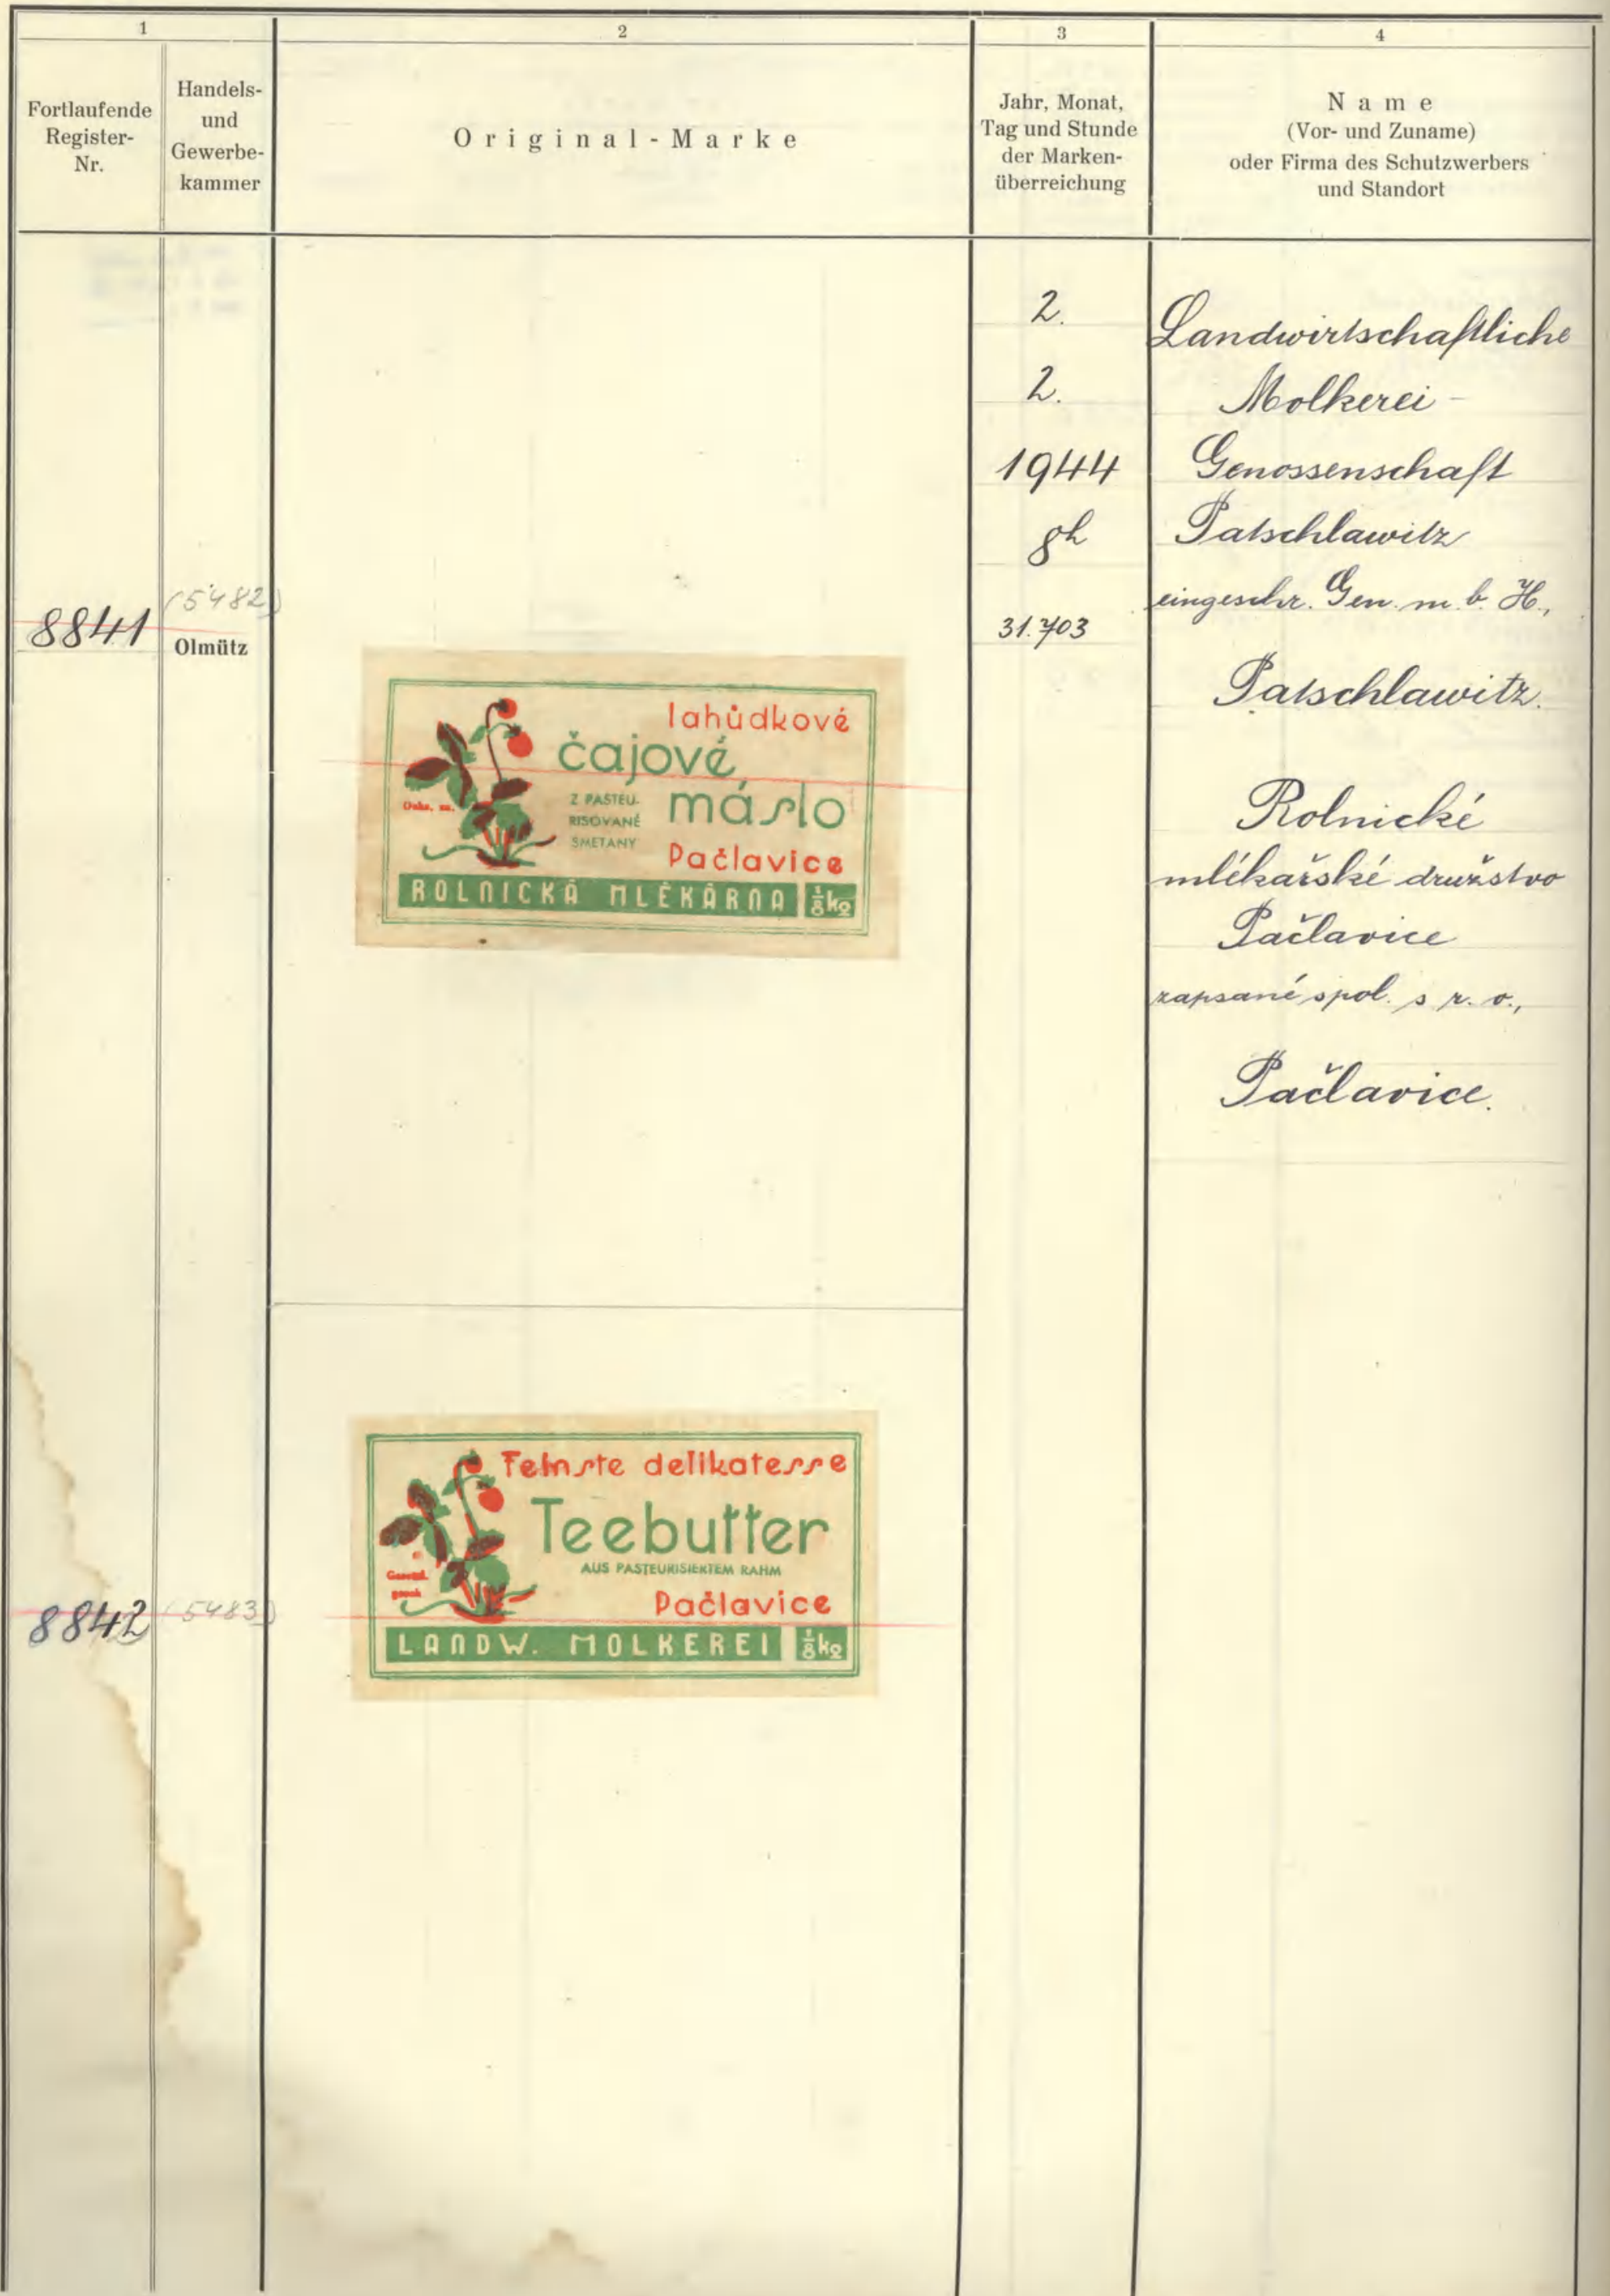 1
2
3
4
Fortlaufende
Register-
Nr.
Handels-
und
Gewerbe-
kammer
Original-Marke
Jahr, Monat,
Tag und Stunde
der Marken-
überreichung
Name
(Vor- und Zuname)
oder Firma des Schutzwerbers
und Standort
8841
(5482)
Olmütz
lahůdkové
čajové
máslo
Z PASTEU-
RISOVANÉ
SMETANY
Pačlavice
ROLNICKÁ MLÉKÁRNA 1/8 kg
2.
2.
1944
8h
31.703
Landwirtschaftliche
Molkerei-
Genossenschaft
Patschlawitz
eingeschr. Gen. m. b. H.,
Patschlawitz.
Rolnické
mlékařské družstvo
Pačlavice
zapsané spol. s r. o.,
Pačlavice.
8842
(5483)
Feinste delikatesse
Teebutter
AUS PASTEURISIERTEM RAHM
Pačlavice
LANDW. MOLKEREI 1/8 kg